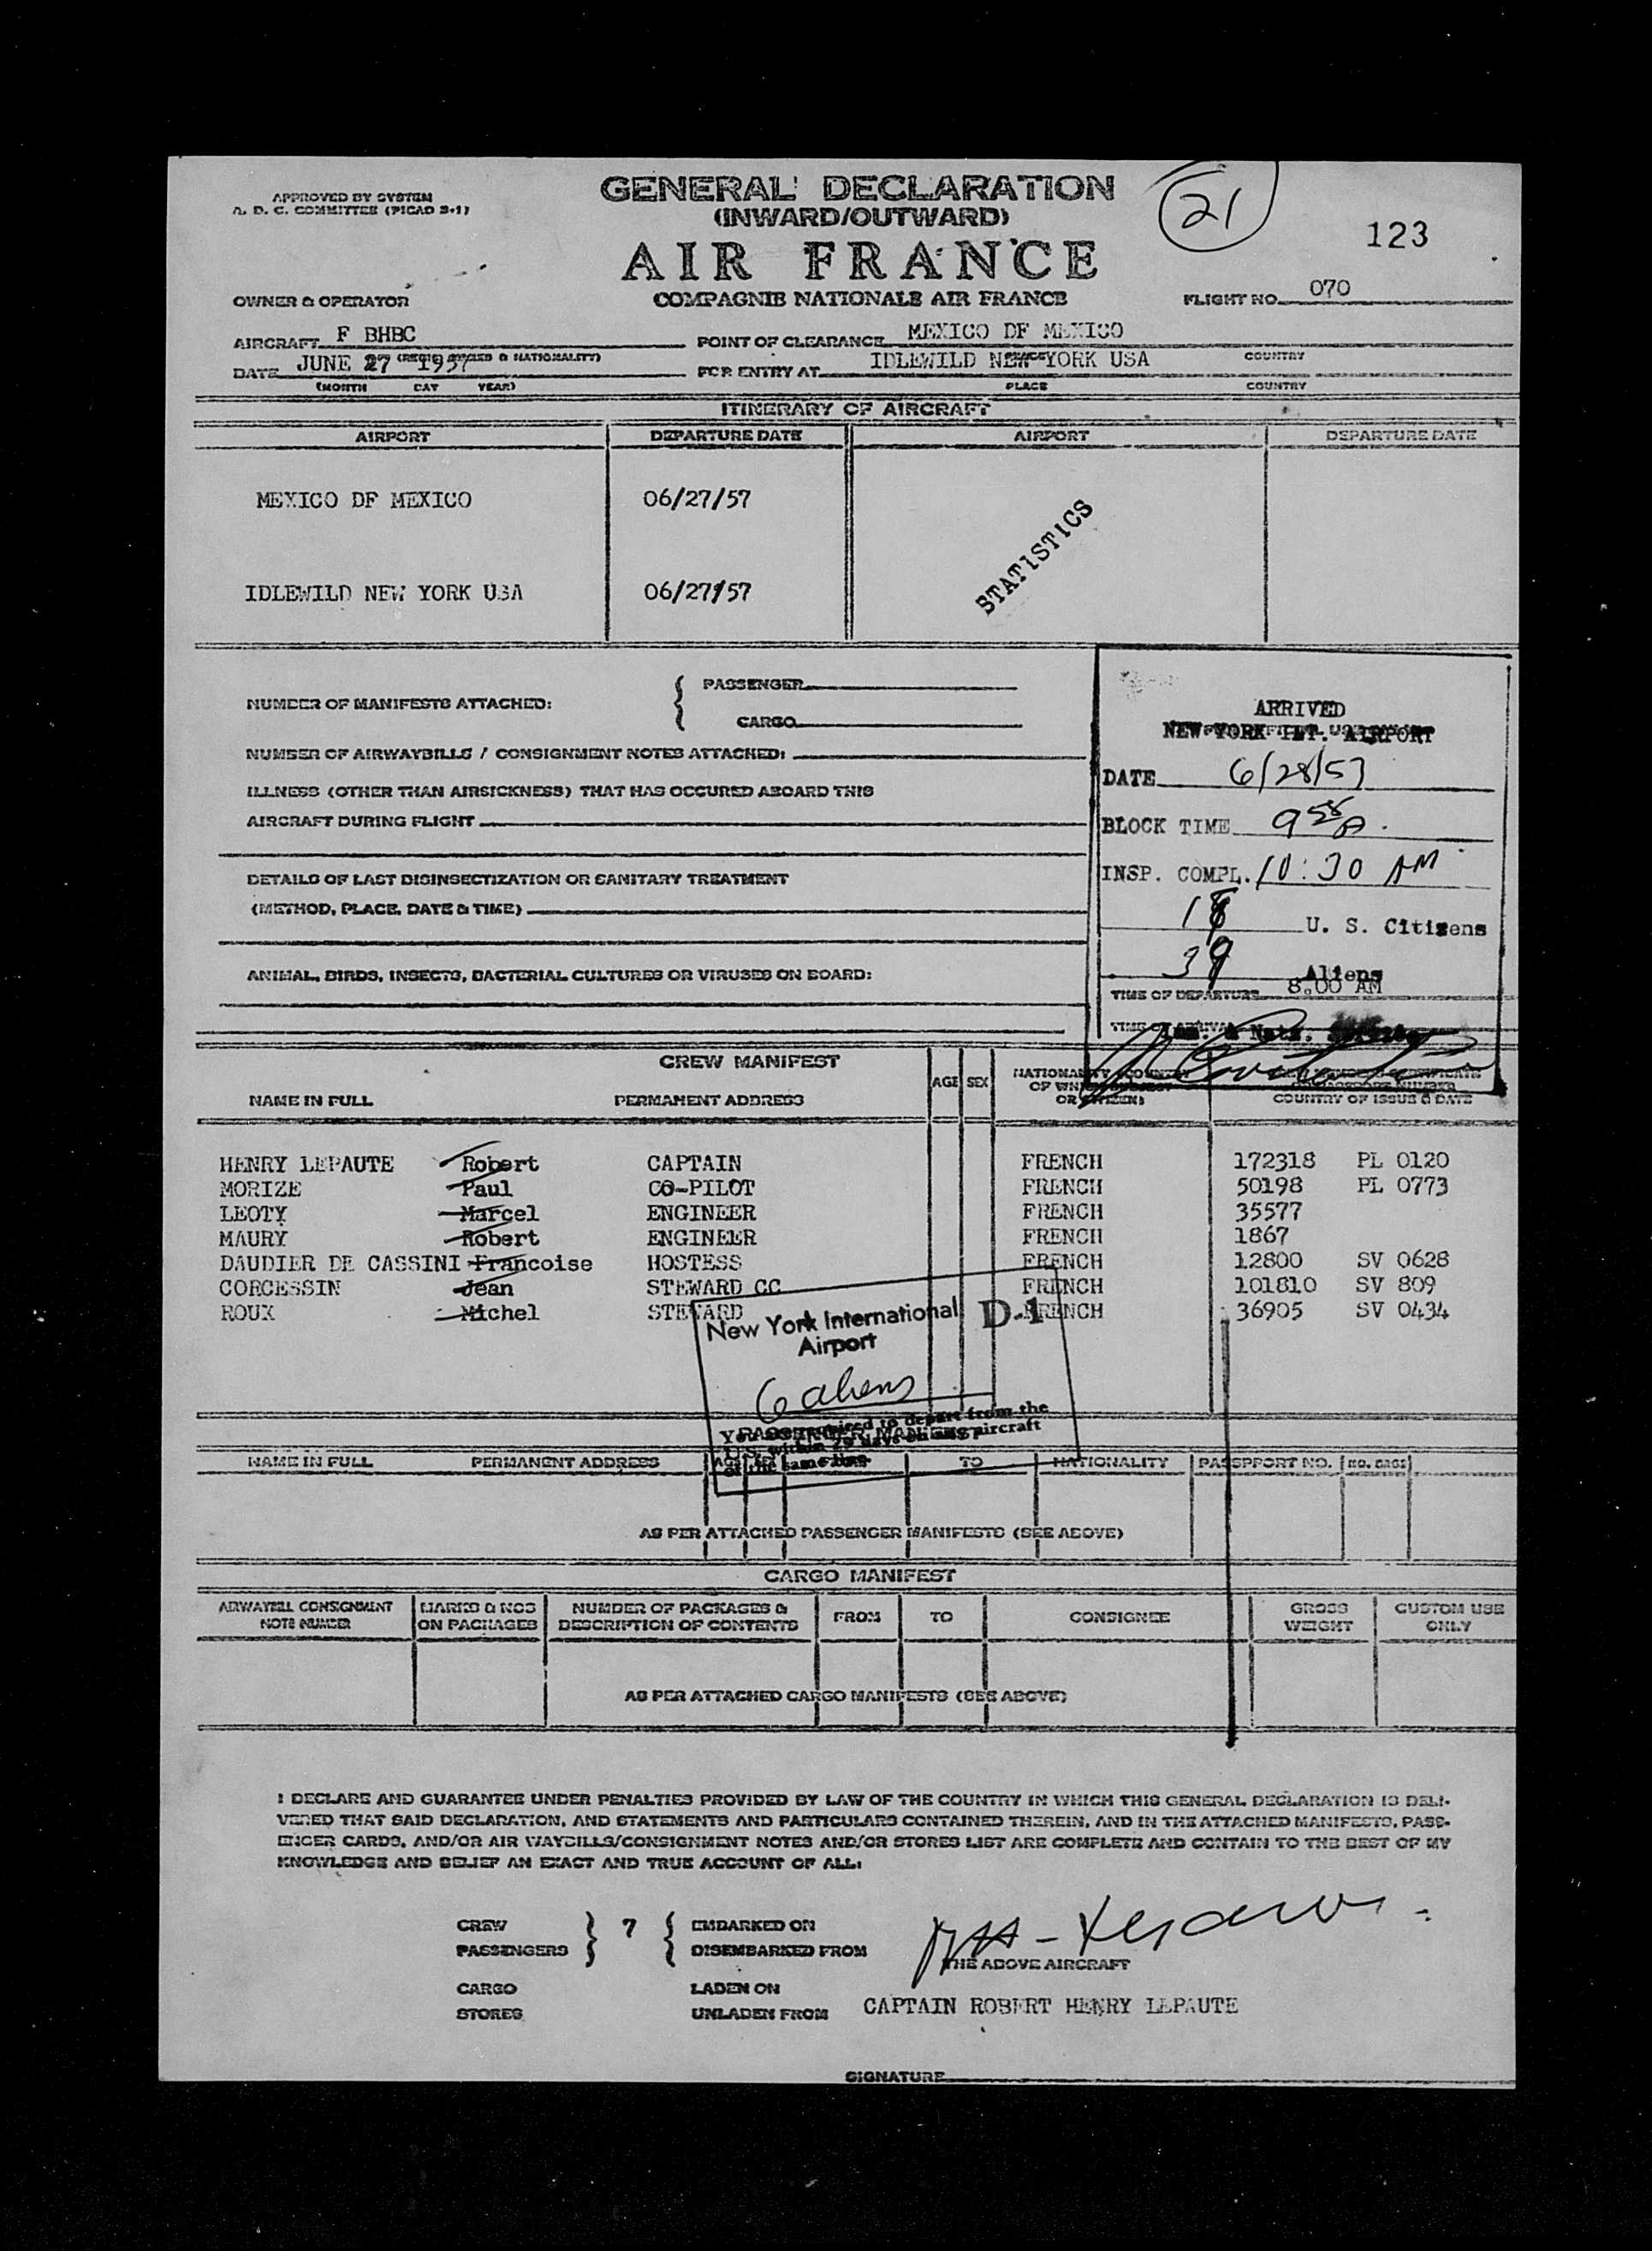 APPROVED BY SYSTEM
A. D. C. COMMITTEE (PICAO 2-1)
GENERAL DECLARATION
(INWARD/OUTWARD)
21
123
AIR FRANCE
OWNER & OPERATOR
COMPAGNIE NATIONALE AIR FRANCE
FLIGHT NO. 070
AIRCRAFT F BHBC
POINT OF CLEARANCE MEXICO DF MEXICO
COUNTRY
DATE JUNE 27 1957
FOR ENTRY AT IDLEWILD NEW YORK USA
(MONTH DAY YEAR)
PLACE COUNTRY
ITINERARY OF AIRCRAFT
AIRPORT DEPARTURE DATE AIRPORT DEPARTURE DATE
MEXICO DF MEXICO 06/27/57
STATISTICS
IDLEWILD NEW YORK USA 06/27/57
NUMBER OF MANIFESTS ATTACHED:
PASSENGER
CARGO
NUMBER OF AIRWAYBILLS / CONSIGNMENT NOTES ATTACHED:
ILLNESS (OTHER THAN AIRSICKNESS) THAT HAS OCCURED ABOARD THIS
AIRCRAFT DURING FLIGHT
DETAILS OF LAST DISINSECTIZATION OR SANITARY TREATMENT
(METHOD, PLACE, DATE & TIME)
ANIMAL, BIRDS, INSECTS, BACTERIAL CULTURES OR VIRUSES ON BOARD:
ARRIVED
NEW YORK INT. AIRPORT
DATE 6/28/57
BLOCK TIME 9 58 A.
INSP. COMPL. 10:30 AM
18 U. S. Citizens
39 Aliens
TIME OF DEPARTURE 8.00 AM
TIME OF ARRIVAL
CREW MANIFEST
NAME IN FULL PERMANENT ADDRESS AGE SEX
COUNTRY OF ISSUE & DATE
HENRY LEPAUTE Robert CAPTAIN FRENCH 172318 PL 0120
MORIZE Paul CO-PILOT FRENCH 50198 PL 0773
LEOTY Marcel ENGINEER FRENCH 35577
MAURY Robert ENGINEER FRENCH 1867
DAUDIER DE CASSINI Francoise HOSTESS FRENCH 12800 SV 0628
CORCESSIN Jean STEWARD CC FRENCH 101810 SV 809
ROUX Michel STEWARD FRENCH 36905 SV 0434
New York International D-1
Airport
6 aliens
You are required to depart from the
U.S. within 29 days on any aircraft
of the same line
NAME IN FULL PERMANENT ADDRESS TO NATIONALITY PASSPPORT NO.
AS PER ATTACHED PASSENGER MANIFESTS (SEE ABOVE)
CARGO MANIFEST
AIRWAYBILL CONSIGNMENT NOTE NUMBER
MARKS & NOS ON PACKAGES
NUMBER OF PACKAGES & DESCRIPTION OF CONTENTS
FROM TO CONSIGNEE
GROSS WEIGHT
CUSTOM USE ONLY
AS PER ATTACHED CARGO MANIFESTS (SEE ABOVE)
I DECLARE AND GUARANTEE UNDER PENALTIES PROVIDED BY LAW OF THE COUNTRY IN WHICH THIS GENERAL DECLARATION IS DELI-
VERED THAT SAID DECLARATION, AND STATEMENTS AND PARTICULARS CONTAINED THEREIN, AND IN THE ATTACHED MANIFESTS, PASS-
ENGER CARDS, AND/OR AIR WAYBILLS/CONSIGNMENT NOTES AND/OR STORES LIST ARE COMPLETE AND CONTAIN TO THE BEST OF MY
KNOWLEDGE AND BELIEF AN EXACT AND TRUE ACCOUNT OF ALL:
CREW 7 EMBARKED ON
PASSENGERS DISEMBARKED FROM
THE ABOVE AIRCRAFT
CARGO LADEN ON
STORES UNLADEN FROM
CAPTAIN ROBERT HENRY LEPAUTE
SIGNATURE